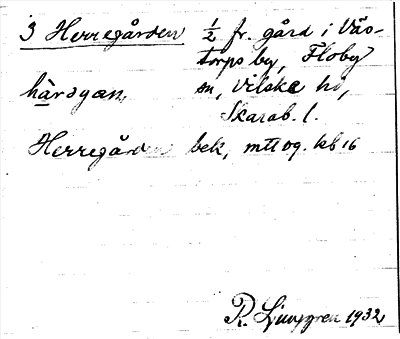 3 Herregården ½ fr. gård i Väs-
torps by, Floby
härsgæn, sn, Vilske hd,
Skarab. l.
Herregården bek, mtl og. kb 16
R. Ljunggren 1932